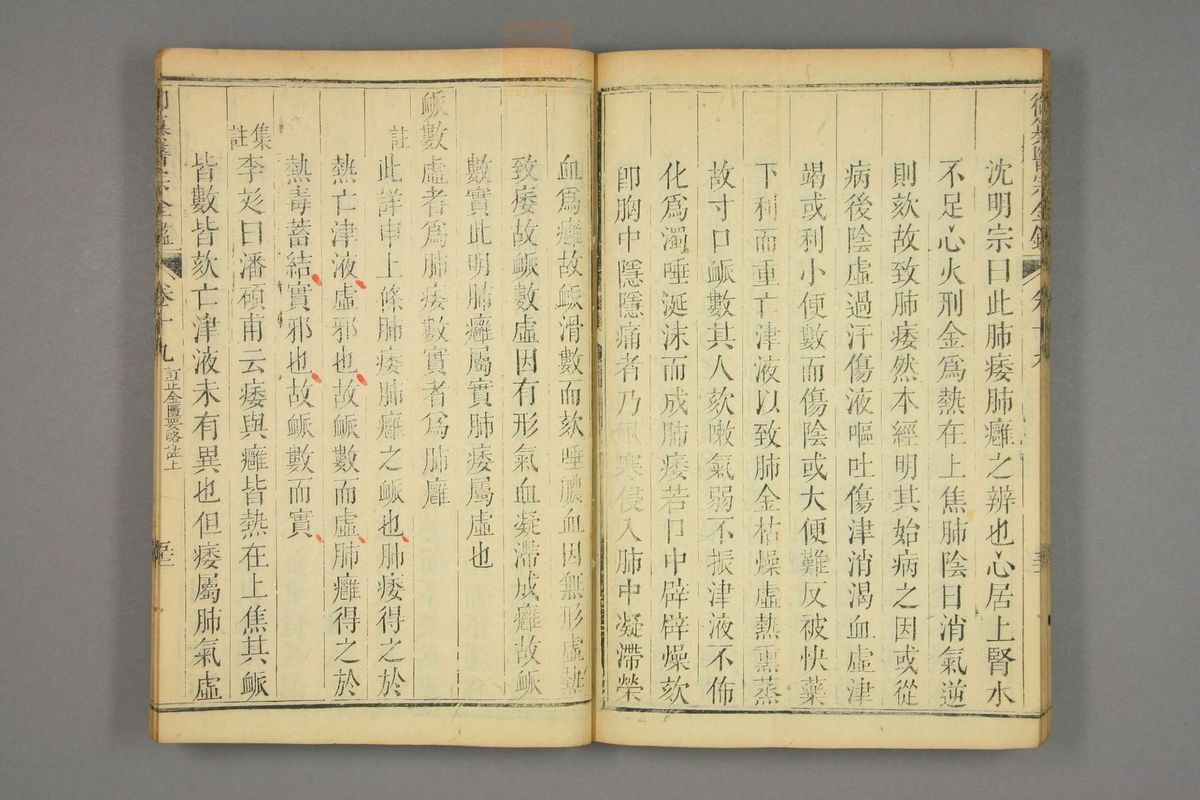 沈明宗曰此肺痿肺癰之辨也心居上腎水
不足心火刑金爲熱在上焦肺陰日消氣逆
則欬故致肺痿然本經明其始病之因或從
病後陰虛過汗傷液嘔吐傷津消渴血虛津
竭或利小便數而傷陰或大便難反被快藥
下利而重亡津液以致肺金枯燥虛熱熏蒸
故寸口脈數其人欬嗽氣弱不振津液不佈
化爲濁唾涎沫而成肺痿若口中辟辟燥欬
卽胸中隱隱痛者乃風寒侵入肺中凝滯榮
血爲癰故脈滑數而欬唾膿血因無形虛熱
致痿故脈數虛因有形氣血凝滯成癰故脈
數實此明肺癰屬實肺痿屬虛也
脈數虛者爲肺痿數實者爲肺癰
註此詳申上條肺痿肺癰之脈也肺痿得之於
熱亡津液虛邪也故脈數而虛肺癰得之於
熱毒蓄結實邪也故脈數而實
集註李彣曰潘碩甫云痿與癰皆熱在上焦其脈
皆數皆欬亡津液未有異也但痿屬肺氣虛
御纂醫宗金鑑 卷十九 訂正金匱要略註上